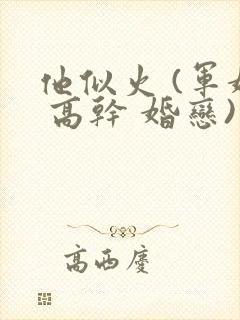 他似火(軍婚
高幹 婚戀)
高西慶